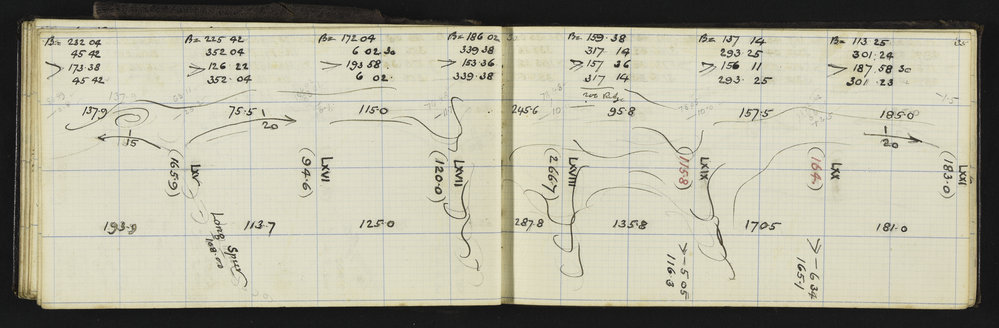 B= 232 04
45 42
> 173.38
45 42
B= 225 42
352 04
> 126 22
352.04
B= 172 04
6 02 30
> 193 58
6 02
B= 186 02 30
339.38
> 153.36
339.38
B= 159.38
317 14
> 157 36
317 14
B= 137 14
293 25
> 156 11
293 25
B= 113 25
301.24
> 187.58 30
301 23
137.9
137.9
75.5
115.0
245.6
95.8
157.5
185.0
-15
-20
-20
LXV
(165.9)
LXVI
(94.6)
LXVII
(120.0)
LXVIII
(266.7)
LXIX
(115.8)
LXX
(164.)
LXXI
(183.0)
193.9
Long Spur
108.00
113.7
125.0
287.8
135.8
> -5 05
116.3
170.5
> -6 34
165.1
181.0